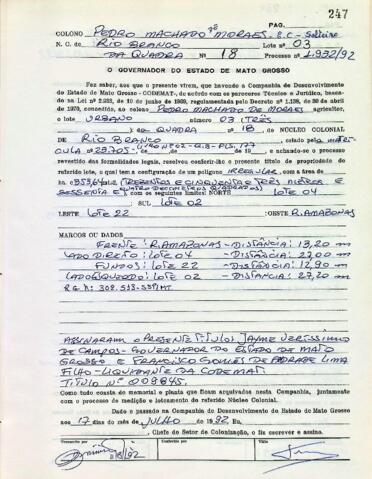 PAG. 247
COLONO PEDRO MACHADO DE MORAES. B.C - Solteiro
N. C. de RIO BRANCO Lote nº 03
DA QUADRA Nº 18 Processo nº 1.932/92
O GOVERNADOR DO ESTADO DE MATO GROSSO
Faz saber, aos que o presente virem, que havendo a Companhia de Desenvolvimento
do Estado de Mato Grosso - CODEMAT, de acordo com os pareceres Técnico e Jurídico, basea-
do na Lei nº 2.233, de 10 de junho de 1969, regulamentada pelo Decreto nº 1.138, de 30 de abril
de 1970, concedido, ao colono PEDRO MACHADO DE MORAES agricultor,
o lote URBANO número 03 (TRÊS
) QUADRA nº 18, do NÚCLEO COLONIAL
DE RIO BRANCO, criado pela MATRÍ-
CULA nº 23.705 LIVRO Nº 02-C.B-FLS. 177 de 19, e achando-se o processo
revestido das formalidades legais, resolveu conferir-lhe o presente título de propriedade do
referido lote, o qual tem a configuração de um polígono IRREGULAR, com a área de
353,64 (TREZENTOS E CINQUENTA E TRÊS METROS E
SESSENTA E QUATRO DECÍMETROS QUADRADOS) com os seguintes limites: NORTE LOTE 04
SUL LOTE 02
LESTE LOTE 22 OESTE R. AMAZONAS
MARCOS OU DADOS
FRENTE: R. AMAZONAS - DISTÂNCIA: 13,20 m
LADO DIREITO: LOTE 04 - DISTÂNCIA: 27,00 m
FUNDOS: LOTE 22 - DISTÂNCIA: 12,90 m
LADO ESQUERDO: LOTE 02 - DISTÂNCIA: 27,20 m
R.G. nº: 308.513-SSP/MT
ASSINARAM O PRESENTE TÍTULO: JAYME VERÍSSIMO
DE CAMPOS - GOVERNADOR DO ESTADO DE MATO
GROSSO E FRANCISCO GOMES DE ANDRADE LIMA
FILHO - LIQUIDANTE DA CODEMAT
TÍTULO Nº 009845.
Como tudo consta do memorial e planta que ficam arquivados nesta Companhia, juntamente
com o processo de medição e loteamento do referido Núcleo Colonial.
Dado e passado na Companhia de Desenvolvimento do Estado de Mato Grosso
aos 17 dias do mês de JULHO de 1992 Eu,
, Chefe do Setor de Colonização, o fiz escrever e assino.
Transcrito por Conferido por Visto
/92